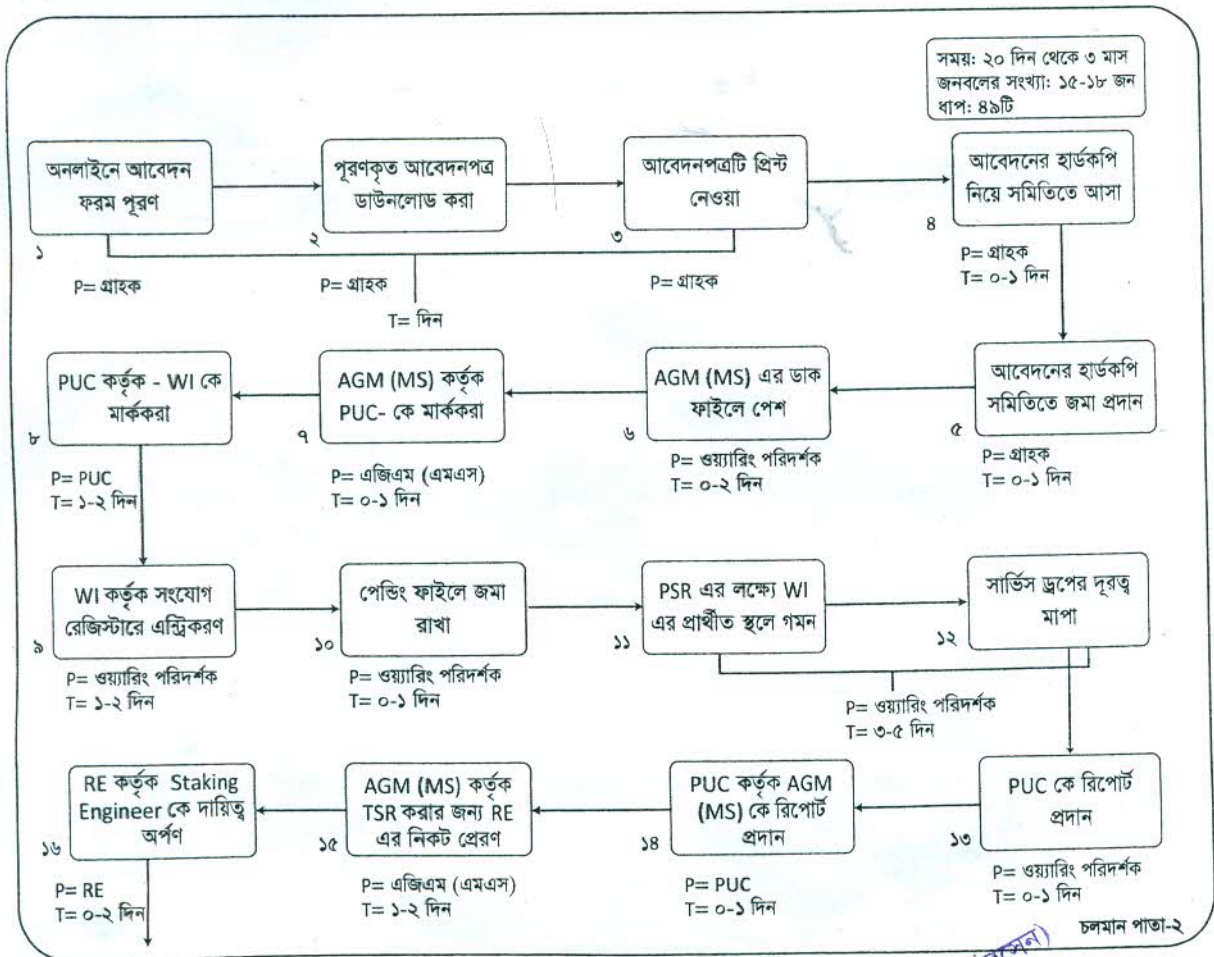 সময়: ২০ দিন থেকে ৩ মাস
জনবলের সংখ্যা: ১৫-১৮ জন
ধাপ: ৪৯টি
অনলাইনে আবেদন
ফরম পূরণ
১
P= গ্রাহক
পূরণকৃত আবেদনপত্র
ডাউনলোড করা
২
P= গ্রাহক
আবেদনপত্রটি প্রিন্ট
নেওয়া
৩
P= গ্রাহক
T= দিন
আবেদনের হার্ডকপি
নিয়ে সমিতিতে আসা
৪
P= গ্রাহক
T= ০-১ দিন
আবেদনের হার্ডকপি
সমিতিতে জমা প্রদান
৫
P= গ্রাহক
T= ০-১ দিন
AGM (MS) এর ডাক
ফাইলে পেশ
৬
P= ওয়্যারিং পরিদর্শক
T= ০-২ দিন
AGM (MS) কর্তৃক
PUC- কে মার্ককরা
৭
P= এজিএম (এমএস)
T= ০-১ দিন
PUC কর্তৃক - WI কে
মার্ককরা
৮
P= PUC
T= ১-২ দিন
WI কর্তৃক সংযোগ
রেজিস্টারে এন্ট্রিকরণ
৯
P= ওয়্যারিং পরিদর্শক
T= ১-২ দিন
পেন্ডিং ফাইলে জমা
রাখা
১০
P= ওয়্যারিং পরিদর্শক
T= ০-১ দিন
PSR এর লক্ষ্যে WI
এর প্রার্থীত স্থলে গমন
১১
সার্ভিস ড্রপের দূরত্ব
মাপা
১২
P= ওয়্যারিং পরিদর্শক
T= ৩-৫ দিন
PUC কে রিপোর্ট
প্রদান
১৩
P= ওয়্যারিং পরিদর্শক
T= ০-১ দিন
PUC কর্তৃক AGM
(MS) কে রিপোর্ট
প্রদান
১৪
P= PUC
T= ০-১ দিন
AGM (MS) কর্তৃক
TSR করার জন্য RE
এর নিকট প্রেরণ
১৫
P= এজিএম (এমএস)
T= ১-২ দিন
RE কর্তৃক Staking
Engineer কে দায়িত্ব
অর্পণ
১৬
P= RE
T= ০-২ দিন
চলমান পাতা-২